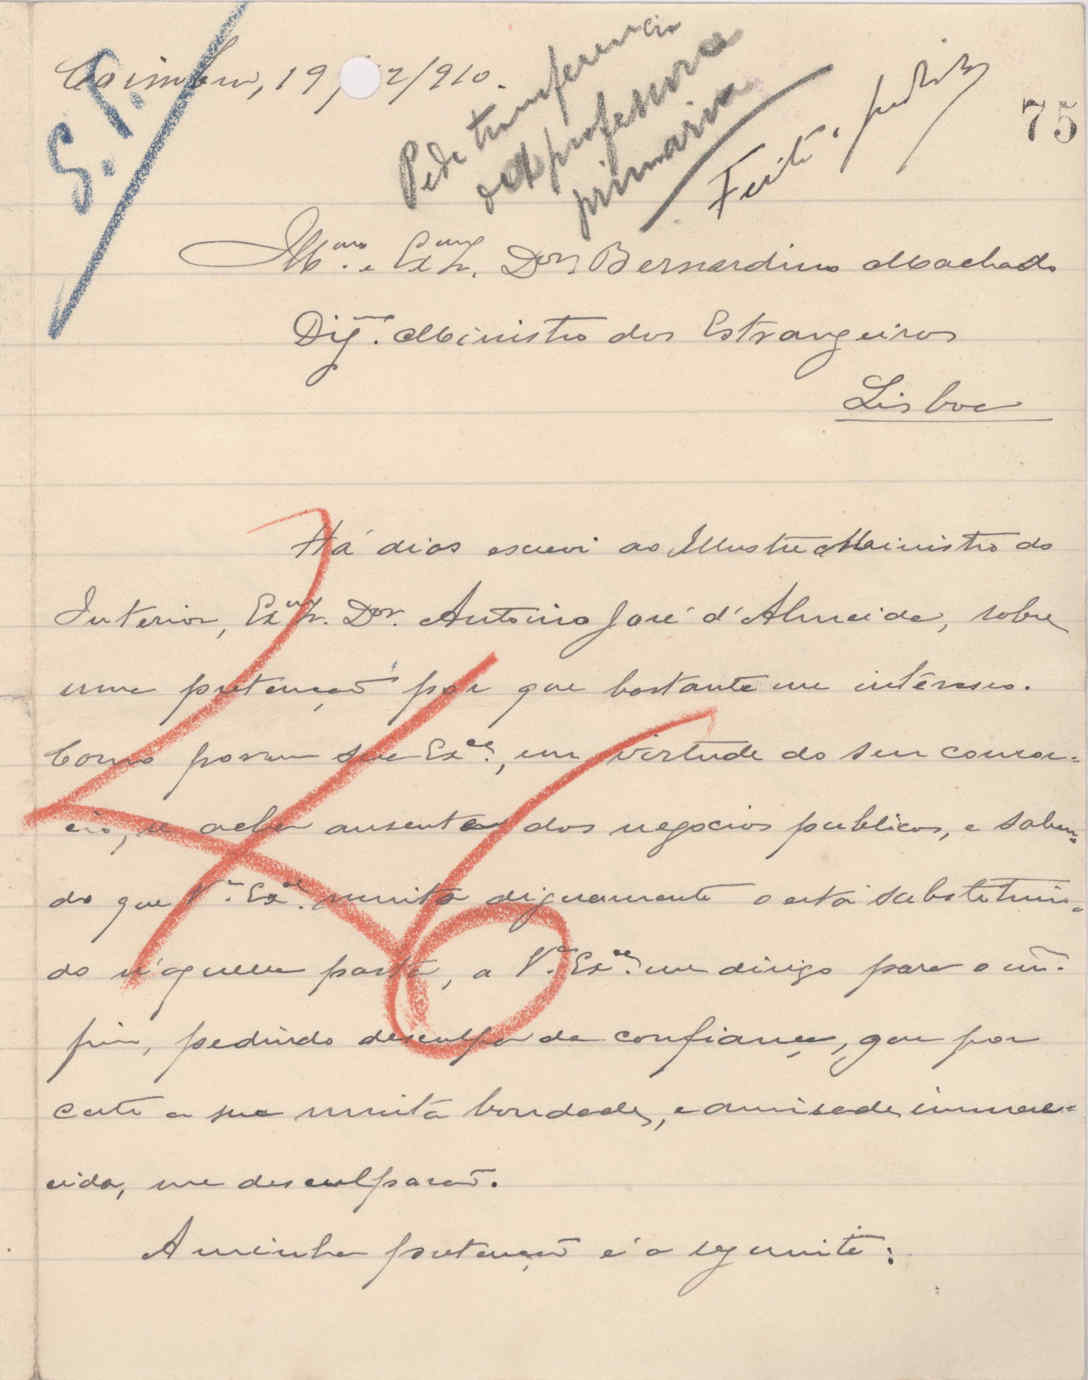 Coimbra, 19/12/910.
S. P.
Pede transferencia
da professora
primaria
Feito o pedido
75
Illmo. e Exmo. Snr. Dor. Bernardino Machado
Digmo. Ministro dos Estrangeiros
Lisboa
Há dias escrevi ao Illustre Ministro do
Interior, Exmo. Snr. Dor. Antonio José d'Almeida, sobre
uma pretenção por que bastante me intéresso.
Como porem sua Exca., em virtude do seu consor-
cio, se acha ausente dos negocios publicos, e saben-
do que Va. Exca. muito dignamente o está substituin-
do n'aquella pasta, a Va. Exca. me dirijo para o mm.
fim, pedindo desculpa da confiança, que por
certo a sua muita bondade, e amisade immere-
cida, me desculparão.
A minha pretenção é a seguinte:
246